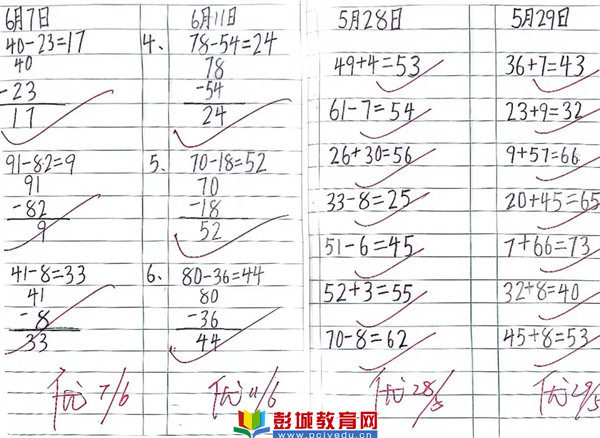 6月7日
40-23=17
40
-23
17
91-82=9
91
-82
9
41-8=33
41
-8
33
优 7/6
6月11日
4、 78-54=24
78
-54
24
5、 70-18=52
70
-18
52
6、 80-36=44
80
-36
44
优 11/6
5月28日
49+4=53
61-7=54
26+30=56
33-8=25
51-6=45
52+3=55
70-8=62
优 28/5
5月29日
36+7=43
23+9=32
9+57=66
20+45=65
7+66=73
32+8=40
45+8=53
优 29/5
彭城教育网
www.pcjyedu.cn